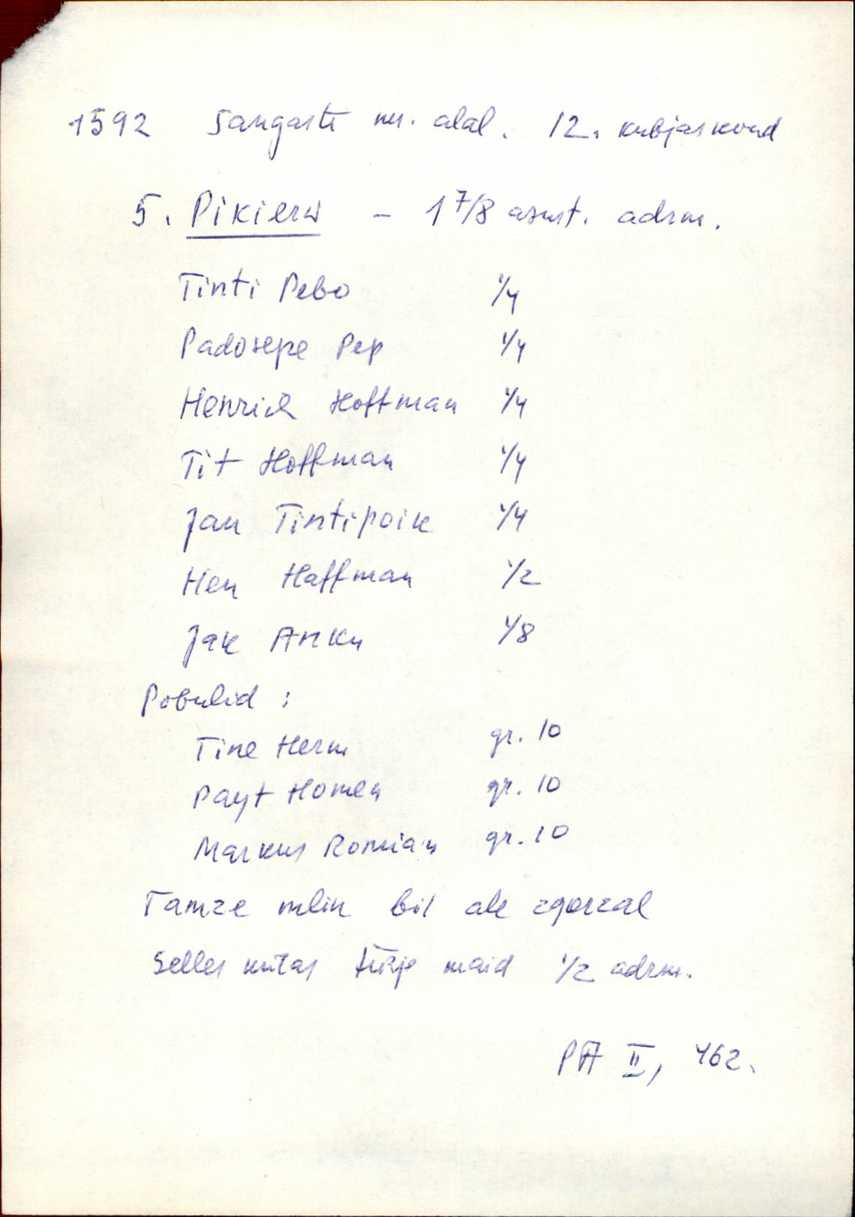 1592 Sangaste m. alal. 12. kubjaskond
5. Pikierw - 1 7/8 asust. adrm.
Tinti Pebo 1/4
Padosepe Pep 1/4
Henrick Hoffman 1/4
Tit Hoffman 1/4
Jan Tintipoik 1/4
Hen Haffman 1/2
Jak Anku 1/8
Pobulid :
Tine Herm gr. 10
Payt Homen gr. 10
Markus Romian gr. 10
Tamze mlin bil ale zgorzal
Selles külas tühje maid 1/2 adrm.
PA II, 462.